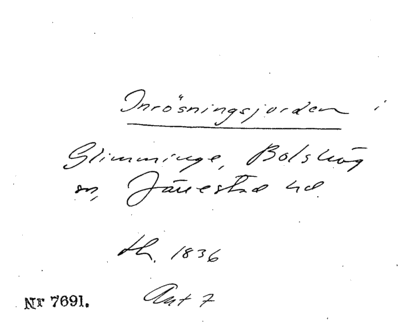 Inrösningsjorden i
Glimminge, Bolshög
sn, Järrestad hd.
th. 1836
Akt 7
Nr 7691.